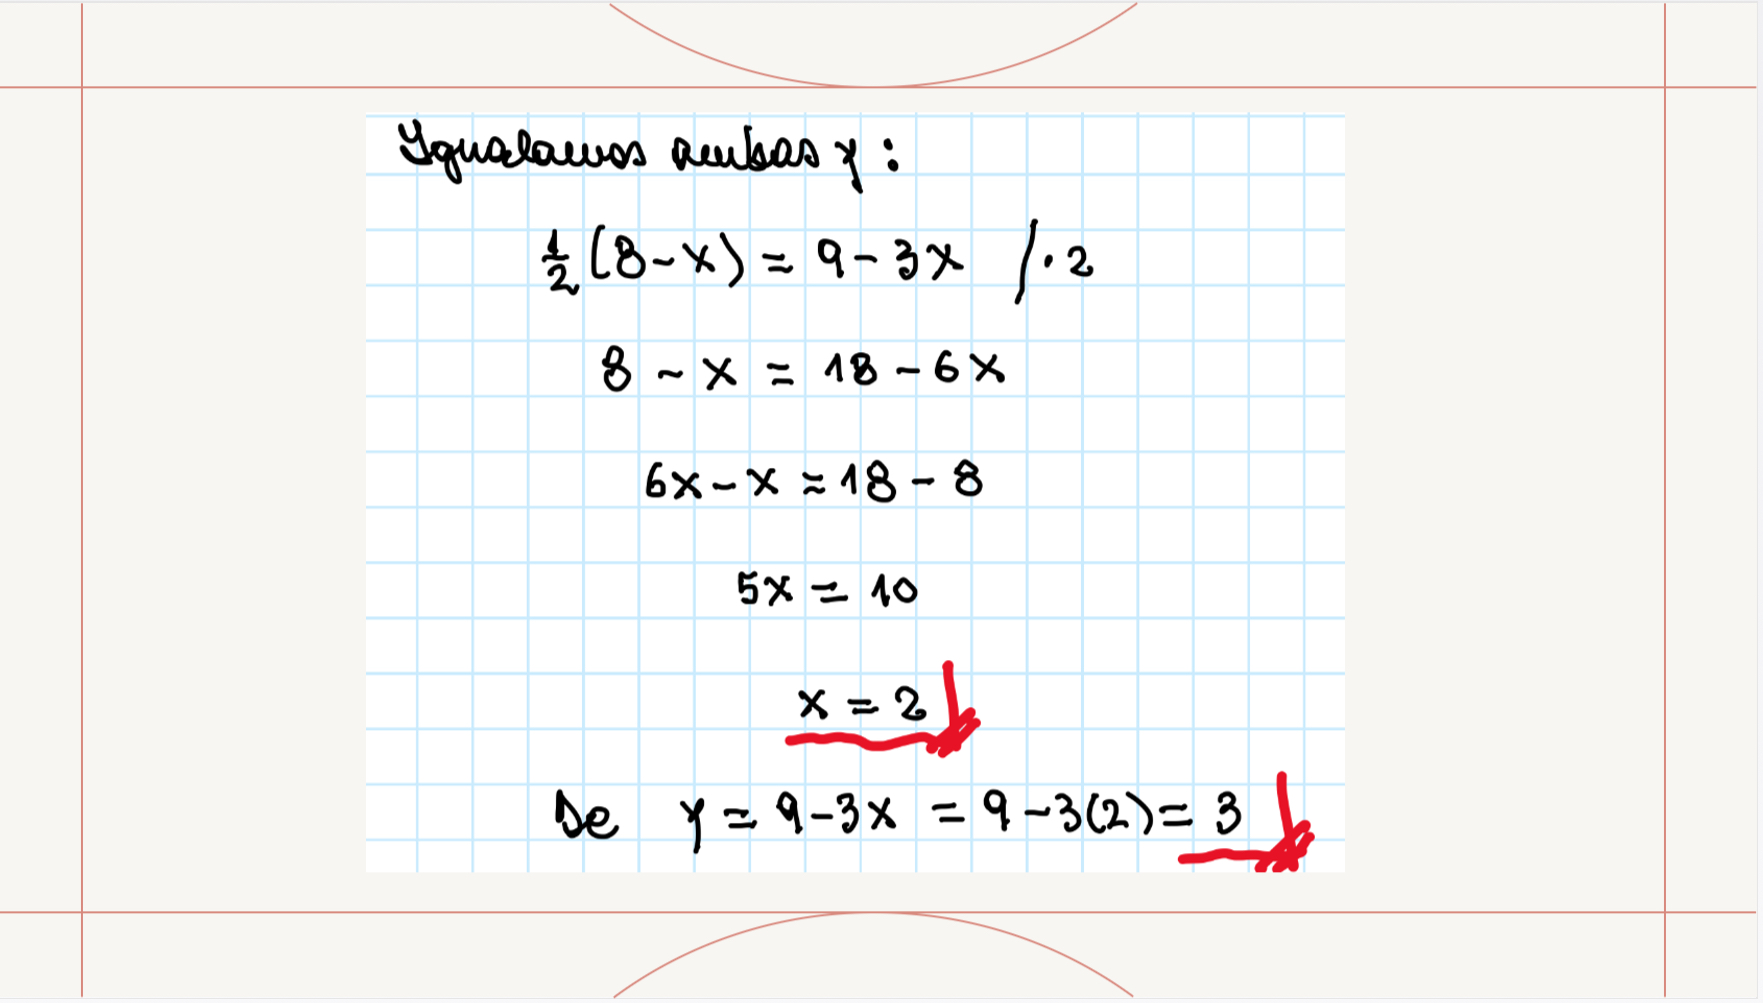 Igualamos ambas y:
1/2 (8-x) = 9-3x /·2
8 - x = 18 - 6x
6x - x = 18 - 8
5x = 10
x = 2
De y = 9-3x = 9-3(2) = 3